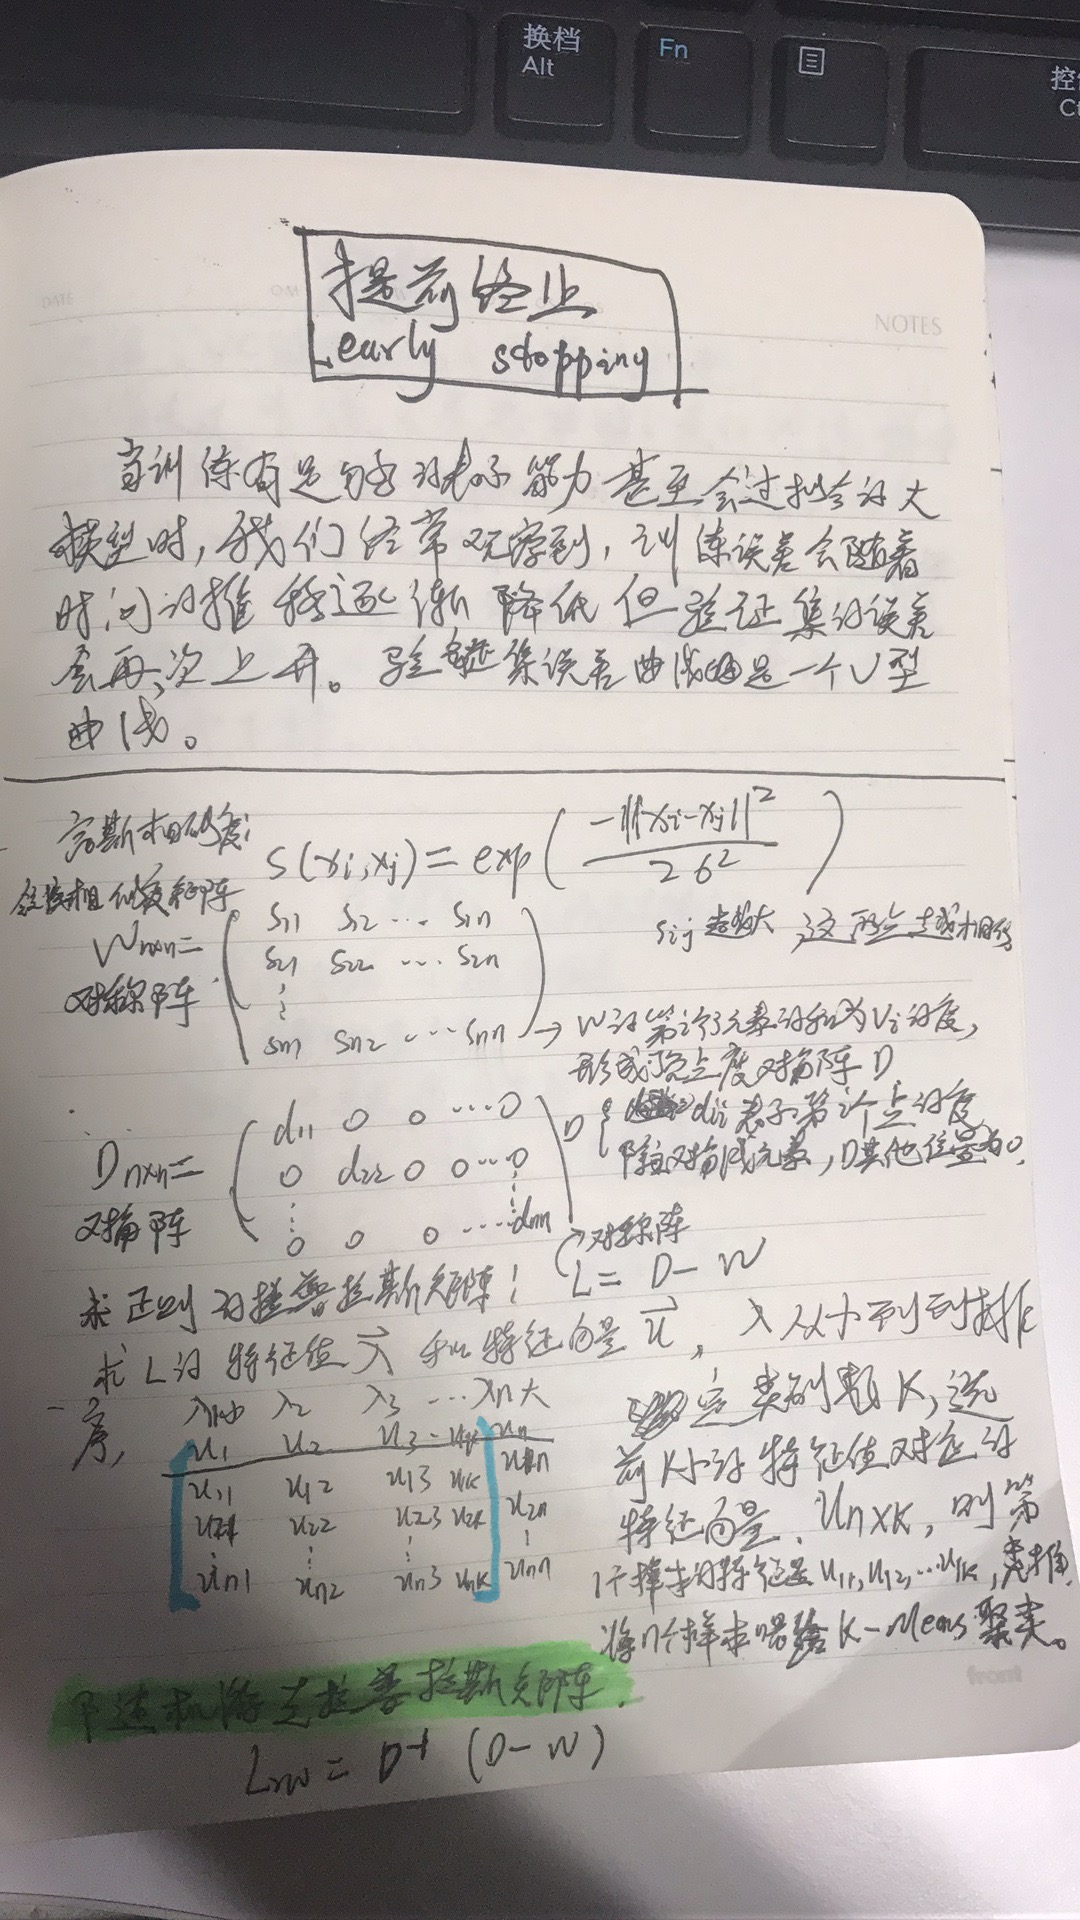 换档
Alt
Fn
控
Ct
DATE
NOTES
提前终止
early stopping
当训练有足够的表示能力甚至会过拟合的大
模型时，我们经常观察到，训练误差会随着
时间的推移逐渐降低但验证集的误差
会再次上升。验证集误差曲线是一个U型
曲线。
高斯相似度：
S(xi,xj)=exp(-||xi-xj||²/2σ²)
相似度矩阵
Sij越大，这两点越相似
Wnxn=
S11 S12 ... S1n
S21 S22 ... S2n
⋮
Sn1 Sn2 ... Snn
对称阵
→W的第i行元素的和为Vi的度，
形成顶点度对角阵D
Dnxn=
d11 0 0 ...0
0 d22 0 0...0
⋮ ⋮
0 0 0 ...dnn
对角阵
D dii表示第i个点的度
除主对角线元素，D其他位置为0.
对称阵
求正则的拉普拉斯矩阵！ L= D-W
求L的特征值λ和特征向量u，λ从小到到排
序，
λ1小 λ2 λ3 ...λn大
u1 u2 u3 .. uk un
u11 u12 u13 u1k u1n
u21 u22 u23 u2k u2n
⋮ ⋮ ⋮ ⋮
un1 un2 un3 unk unn
定类别数K，选
前K小的特征值对应的
特征向量.Unxk，则第
1个样本的特征是u11,u12,...u1k，类推，
将n个样本喂给K-Means聚类。
front
随机游走拉普拉斯矩阵.
Lrw = D-1 (D-W)